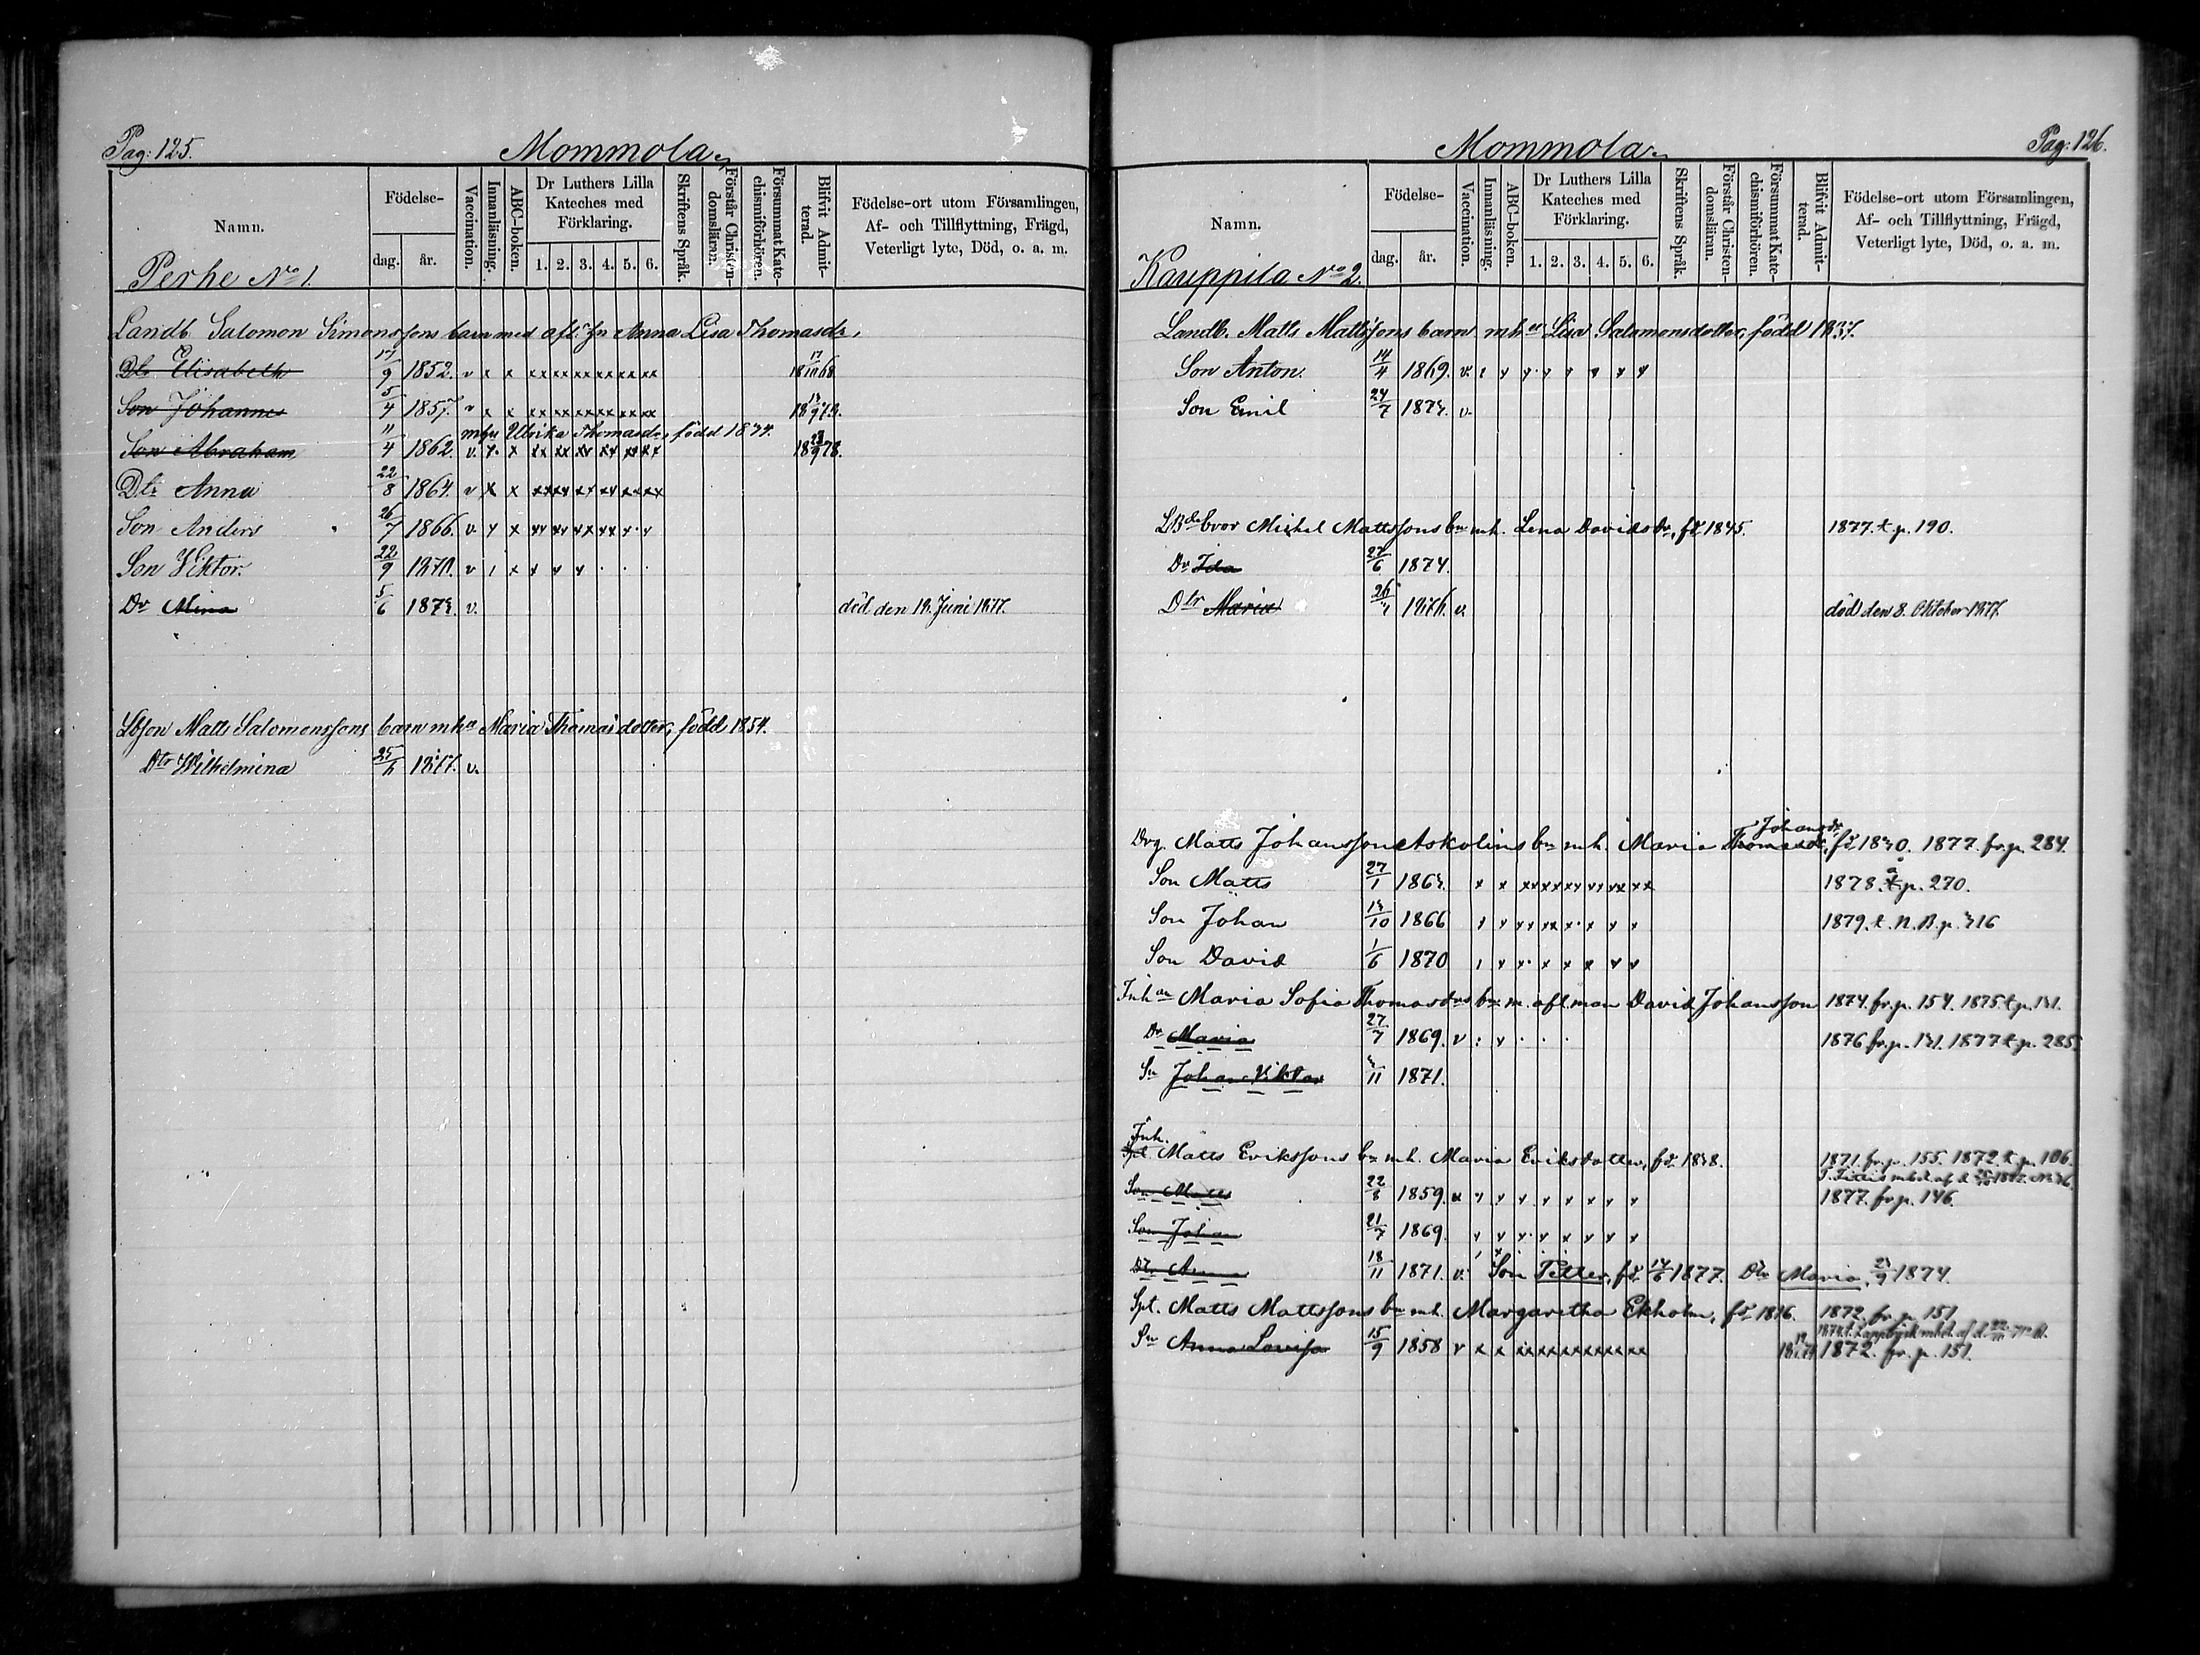 Pag: 125.
Mommola
Namn.
Födelse-
dag.
år.
Vaccination.
Innanläsning.
ABC-boken.
Dr Luthers Lilla Kateches med Förklaring.
1. 2. 3. 4. 5. 6.
Skriftens Språk.
Förstår Christen-domsläran.
Försummat Kate-chismiförhören.
Blifvit Admit-terad.
Födelse-ort utom Församlingen,
Af- och Tillflyttning, Frägd,
Veterligt lyte, Död, o. a. m.
Perhe No 1.
Landb. Salomon Simonssons barn med afl. Anna Lisa Thomasdr,
Dtr Elisabeth 17/9 1852. v x x xx xx xx xx xx xx
Son Johannes 5/4 1857. v x x xx xx xx xx xx xx
mhu Ulrika Thomasdr, född 1834.
Son Abraham 11/4 1862. v. x x xx xx xx xx xx xx 18 23/9 78.
Dtr Anna 22/8 1864. v x x xx xx xx xx xx xx
Son Anders 26/7 1866. v. x x xx xx xx xx x x
Son Viktor. 22/9 1870. v x x x x
Dr Mina 5/6 1873. v. död den 18. Juni 1877.
Lbson Matts Salomonssons barn mhu Maria Thomasdotter, född 1854.
Dtr Wilhelmina 25/6 1877. v.
Pag: 126.
Mommola
Namn.
Födelse-
dag.
år.
Vaccination.
Innanläsning.
ABC-boken.
Dr Luthers Lilla Kateches med Förklaring.
1. 2. 3. 4. 5. 6.
Skriftens Språk.
Förstår Christen-domsläran.
Försummat Kate-chismiförhören.
Blifvit Admit-terad.
Födelse-ort utom Församlingen,
Af- och Tillflyttning, Frägd,
Veterligt lyte, Död, o. a. m.
Kauppila No 2.
Landb. Matts Mattssons barn mhu Lisa Salomonsdotter, född 1837.
Son Anton. 14/4 1869. v.
Son Emil 24/7 1873. v.
Michel Mattssons bn mh. Lena Davidsdr, fd 1845. 1877. t. p. 190.
Dr Ida 27/6 1874.
Dtr Maria 1876. v. död den 8. Oktober 1877.
Drg. Matts Johansson Askolins bn mh. Maria Thomasdr Johansdr, fd 1830. 1877. fr. p. 284.
Son Matts 27/1 1863. x x xx xx xx xx xx xx 1878. å p. 270.
Son Johan 13/10 1866 1879. t. N.B. p. 316
Son David 1/6 1870
Inhan Maria Sofia Thomasdrs bn m. afl. man David Johansson 1874. fr. p. 154. 1875. t. p. 131.
Dr Maria 27/7 1869. v 1876 fr. p. 131. 1877 t. p. 285.
Sn Johan Viktor 1871.
Inh.
Spt Matts Erikssons bn mh. Maria Eriksdotter, fd. 1838. 1871. fr. p. 155. 1872. t. p. 106.
Son Matts 22/8 1859. 1877. fr. p. 146.
Son Johan 21/7 1869.
Dtr Anna 18/11 1871. v. Son Petter, fd. 14/6 1877. Dtr Maria, 1874.
Spt. Matts Mattssons bn mh. Margaretha Ekholm, fd 1816. 1872. fr. p. 151.
Sn Anna Lovisa 15/9 1858 v x x xx xx xx xx xx xx 1872. fr. p. 151.